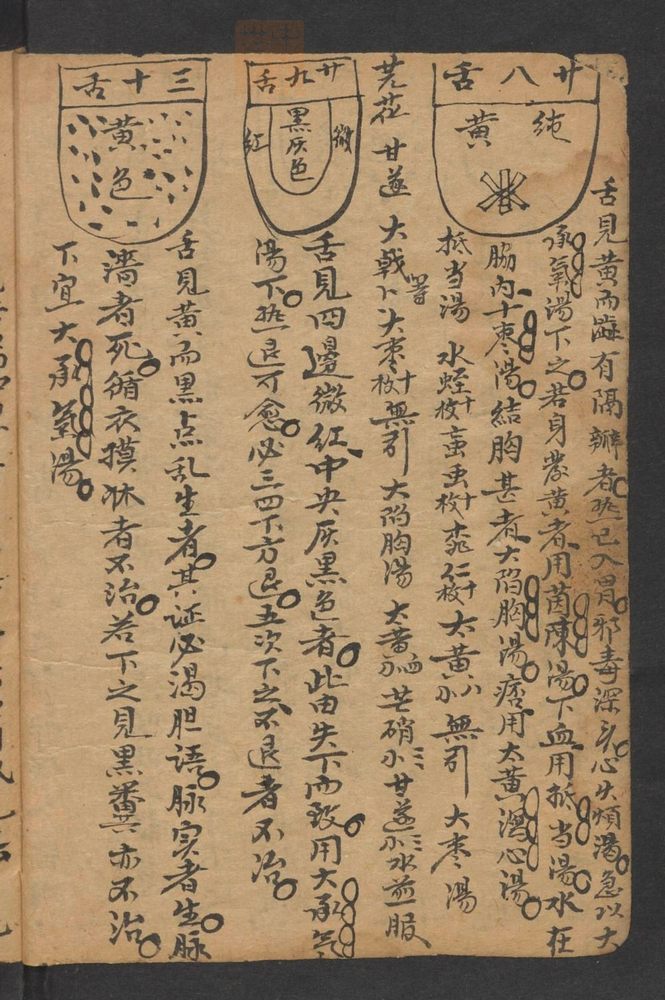 廿八舌
純黃
舌見黃而澁有隔瓣者熱已入胃邪毒深矣心火煩渴急以大
承氣湯下之若身發黃者用茵陳湯下血用抵当湯水在
脇內十枣湯結胸甚者大陷胸湯痞用大黃瀉心湯
抵当湯 水蛭十枚 䖟虫十枚 桃仁十枚 大黃八 無引 大枣湯
芫花 甘遂 大戟等 大枣十枚 無引 大陷胸湯 大黃 芒硝 甘遂 水煎服
廿九舌
微紅
黑灰色
舌見四邊微紅中央灰黑色者此由失下而致用大承气
湯下熱退可愈必三四下方退五次下之不退者不治
三十舌
黃色
舌見黃而黑点乱生者其证必渴胆语脉实者生脉
濇者死循衣摸牀者不治若下之見黑糞亦不治
下宜大承氣湯